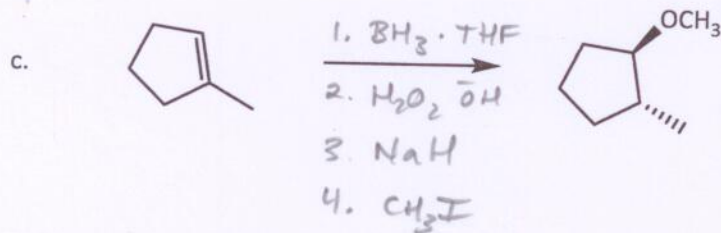 c.
1. BH₃ · THF
2. H₂O₂ ŌH
3. NaH
4. CH₃I
OCH₃